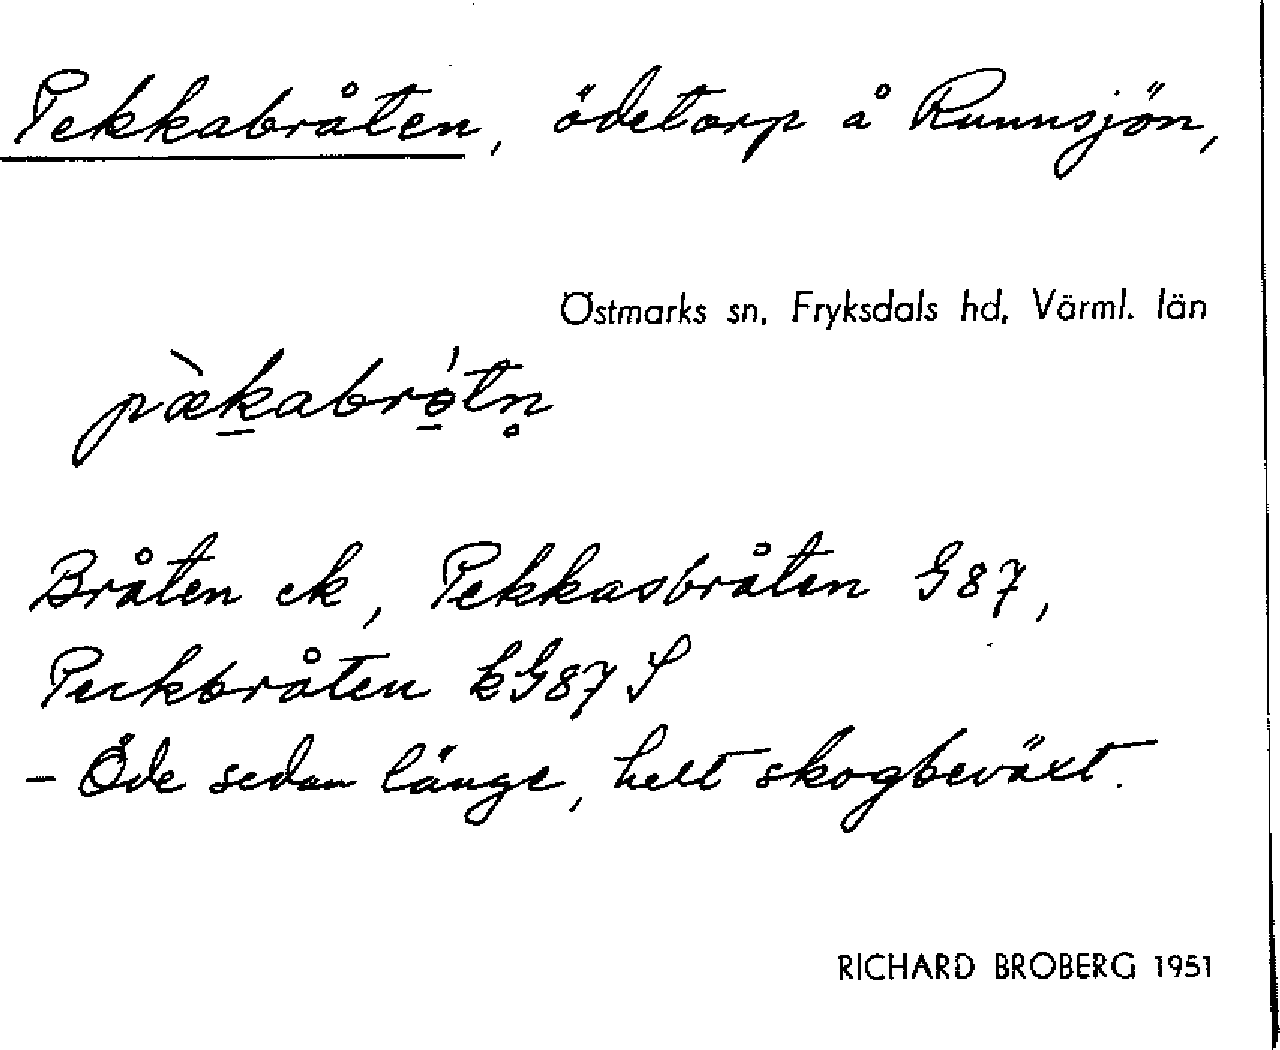 Pekkabråten, ödetorp å Runnsjön,
Östmarks sn, Fryksdals hd, Värml. län
pæ̀ḵabrɵ̱́tn̥
Bråten ek, Pekkasbråten G87,
Peckbråten kG87 S
- Öde sedan länge, helt skogbeväxt.
RICHARD BROBERG 1951